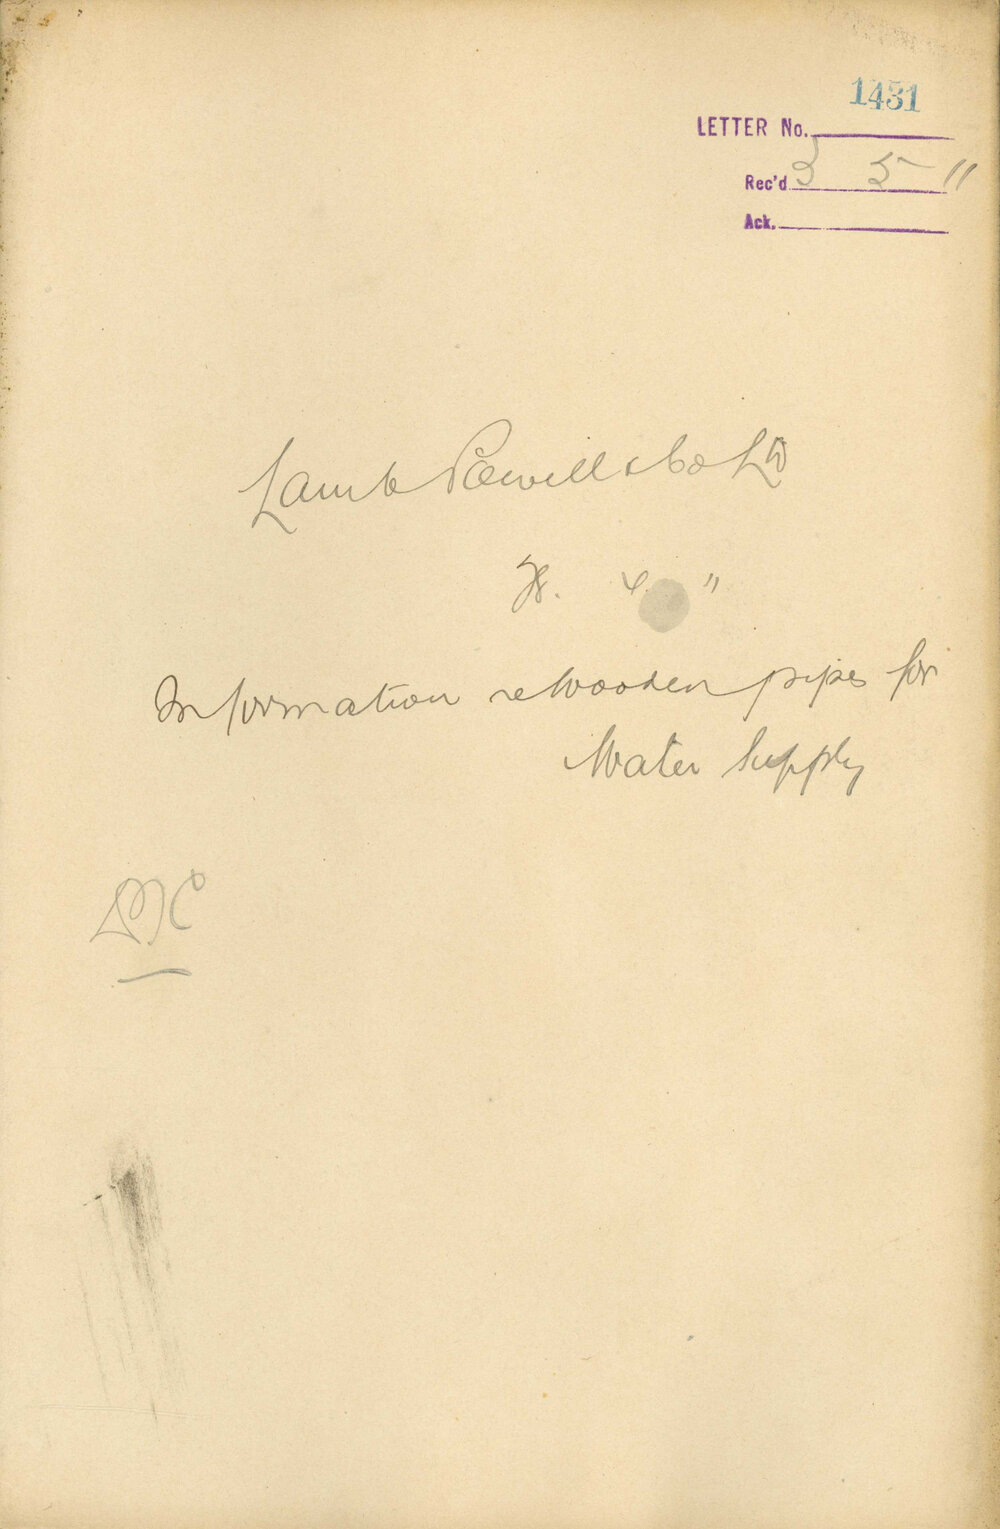 1431
LETTER No.
Rec'd 3 5 11
Ack.
Lamb Powill & Co Ld
28. 4. "
Information re Wooden pipes for
Water Supply